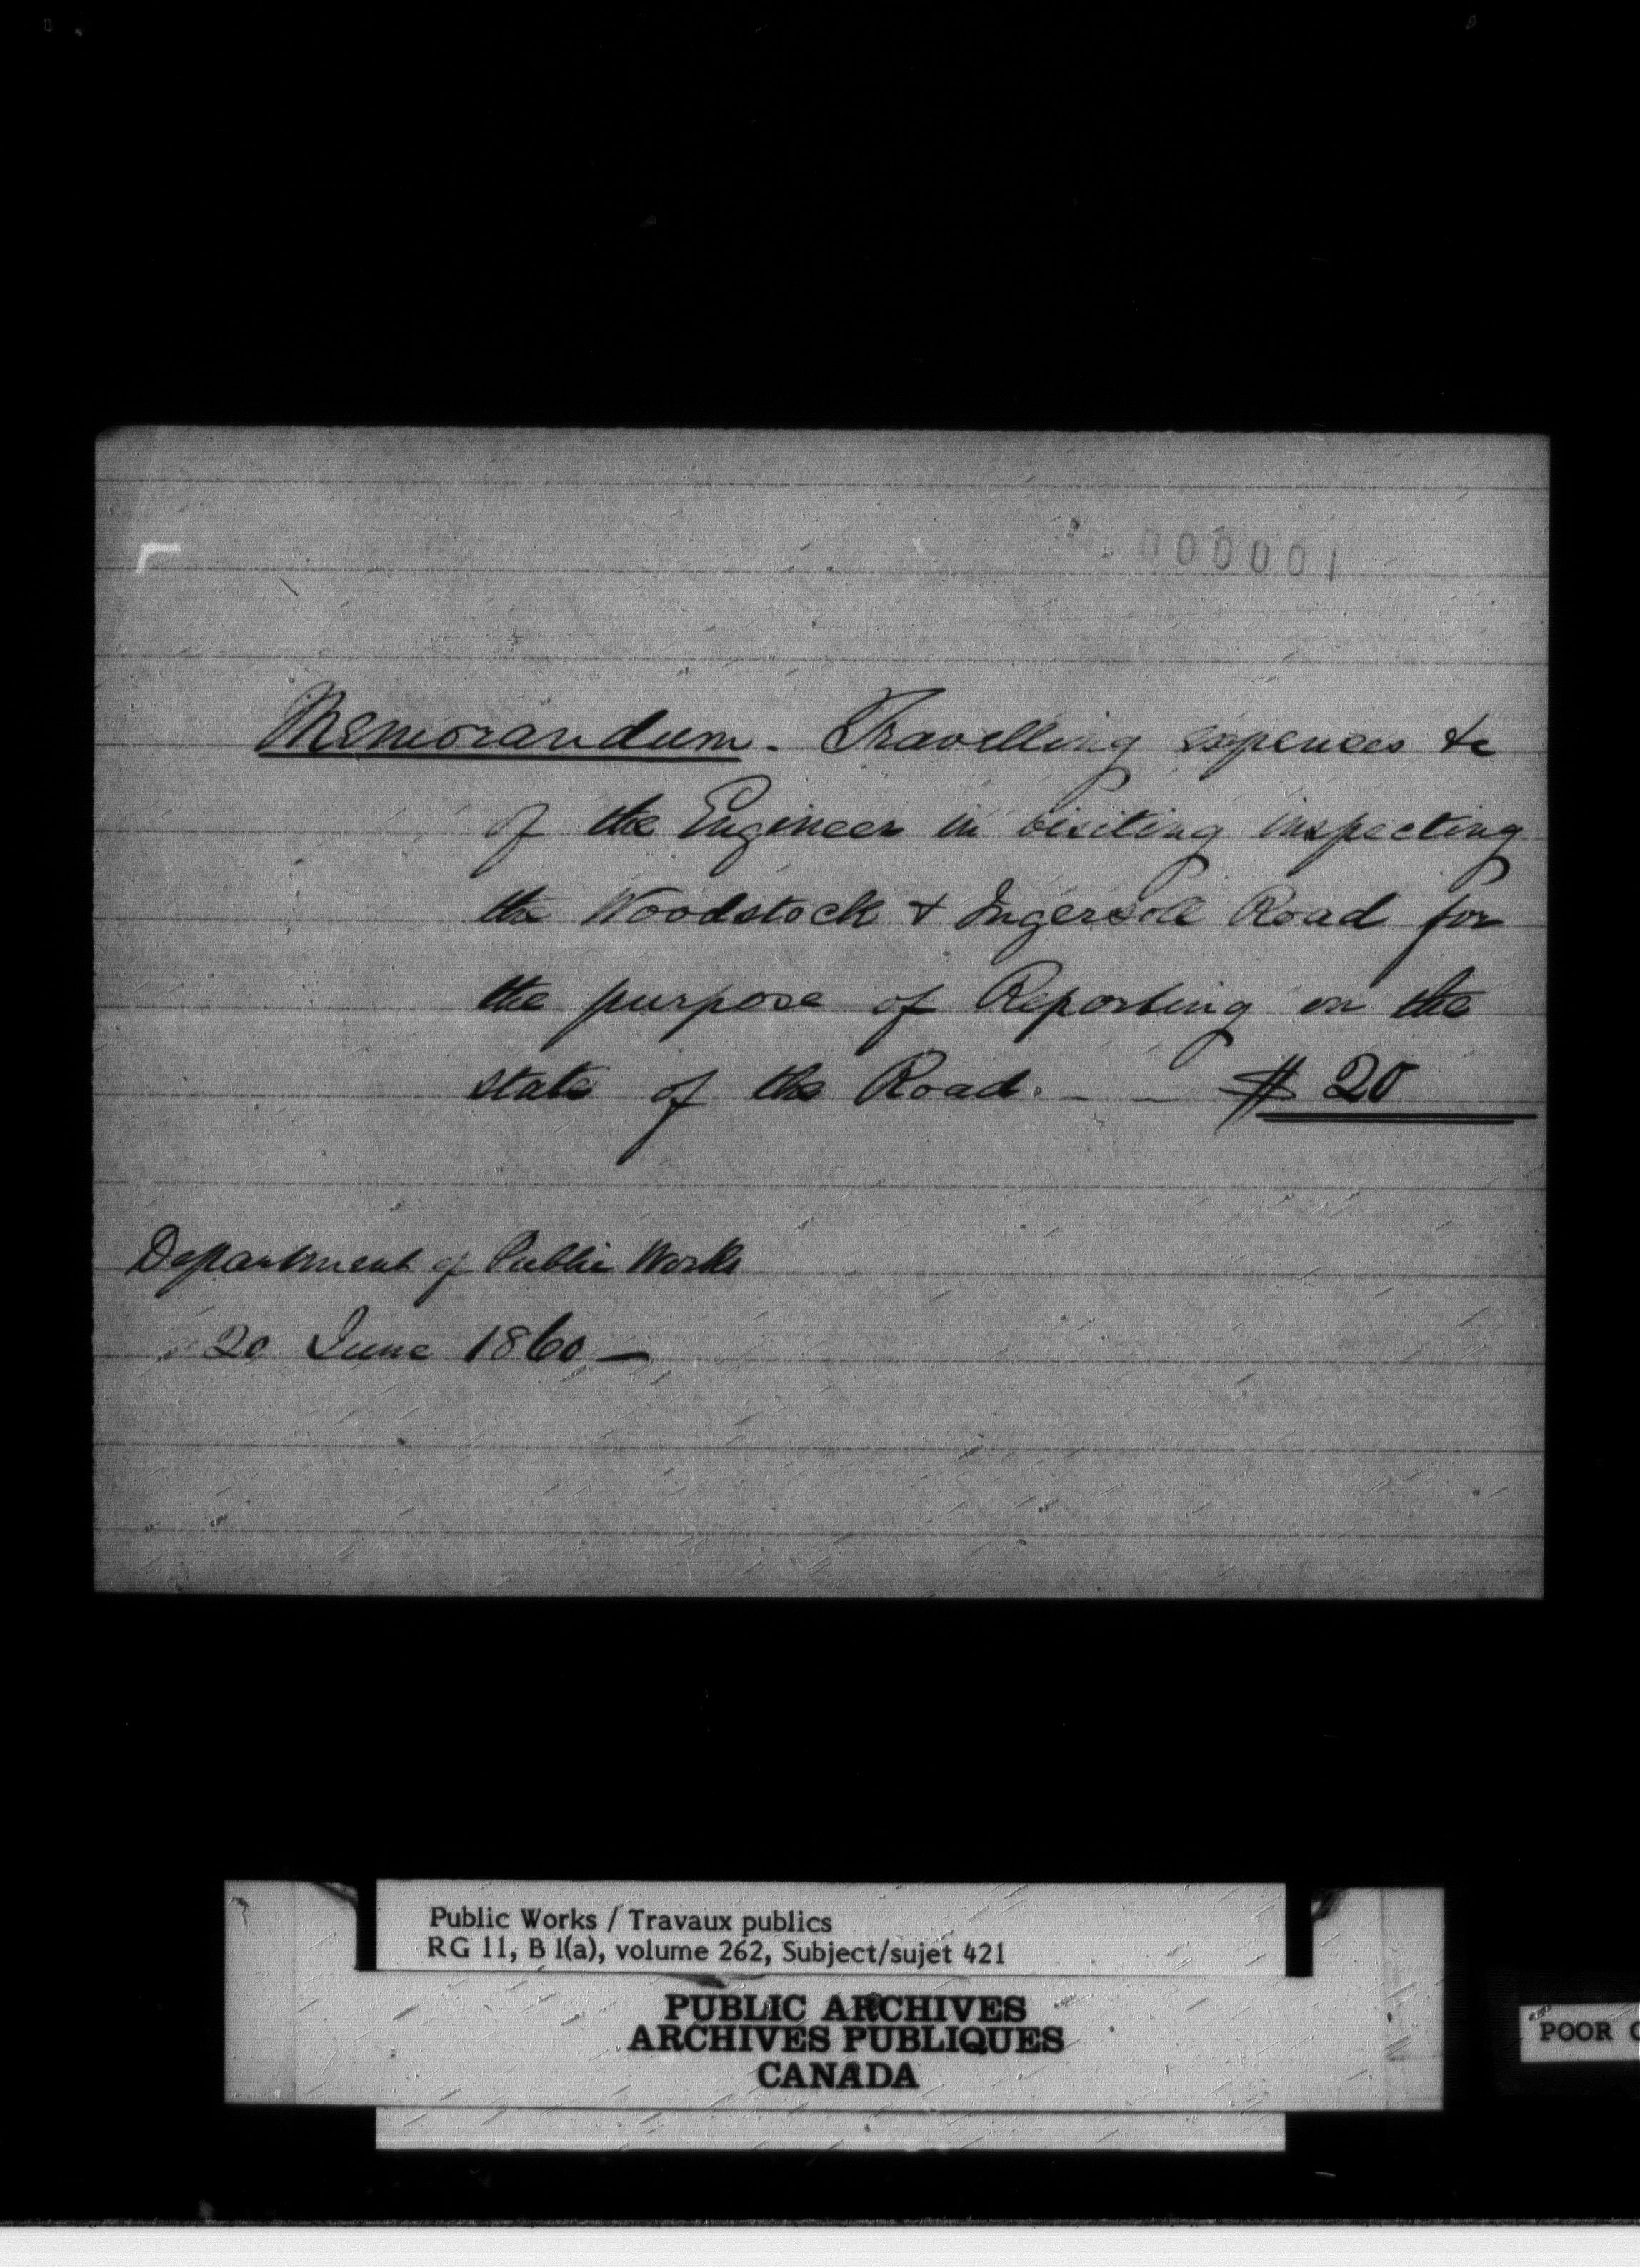 000001
Memorandum. Travelling expenses &c
of the Engineer in visiting inspecting
the Woodstock & Ingersoll Road for
the purpose of Reporting on the
state of the Road. _ _ $ 20
Department of Public Works
20 June 1860 —
Public Works / Travaux publics
RG 11, B 1(a), volume 262, Subject/sujet 421
PUBLIC ARCHIVES
ARCHIVES PUBLIQUES
CANADA
POOR